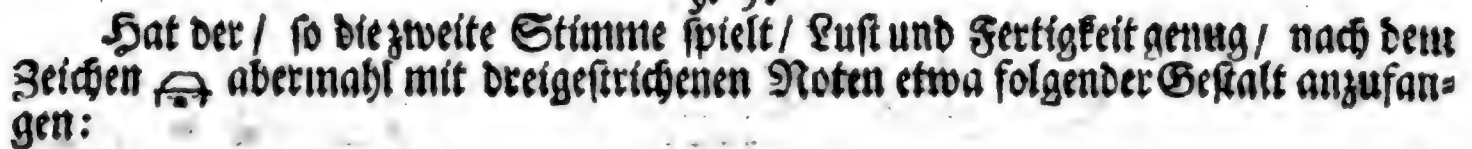 Hat der / so die zweite Stimme spielt / Lust und Fertigkeit genug / nach dem
Zeichen 𝄐 abermahl mit dreigestrichenen Noten etwa folgender Gestalt anzufan=
gen: